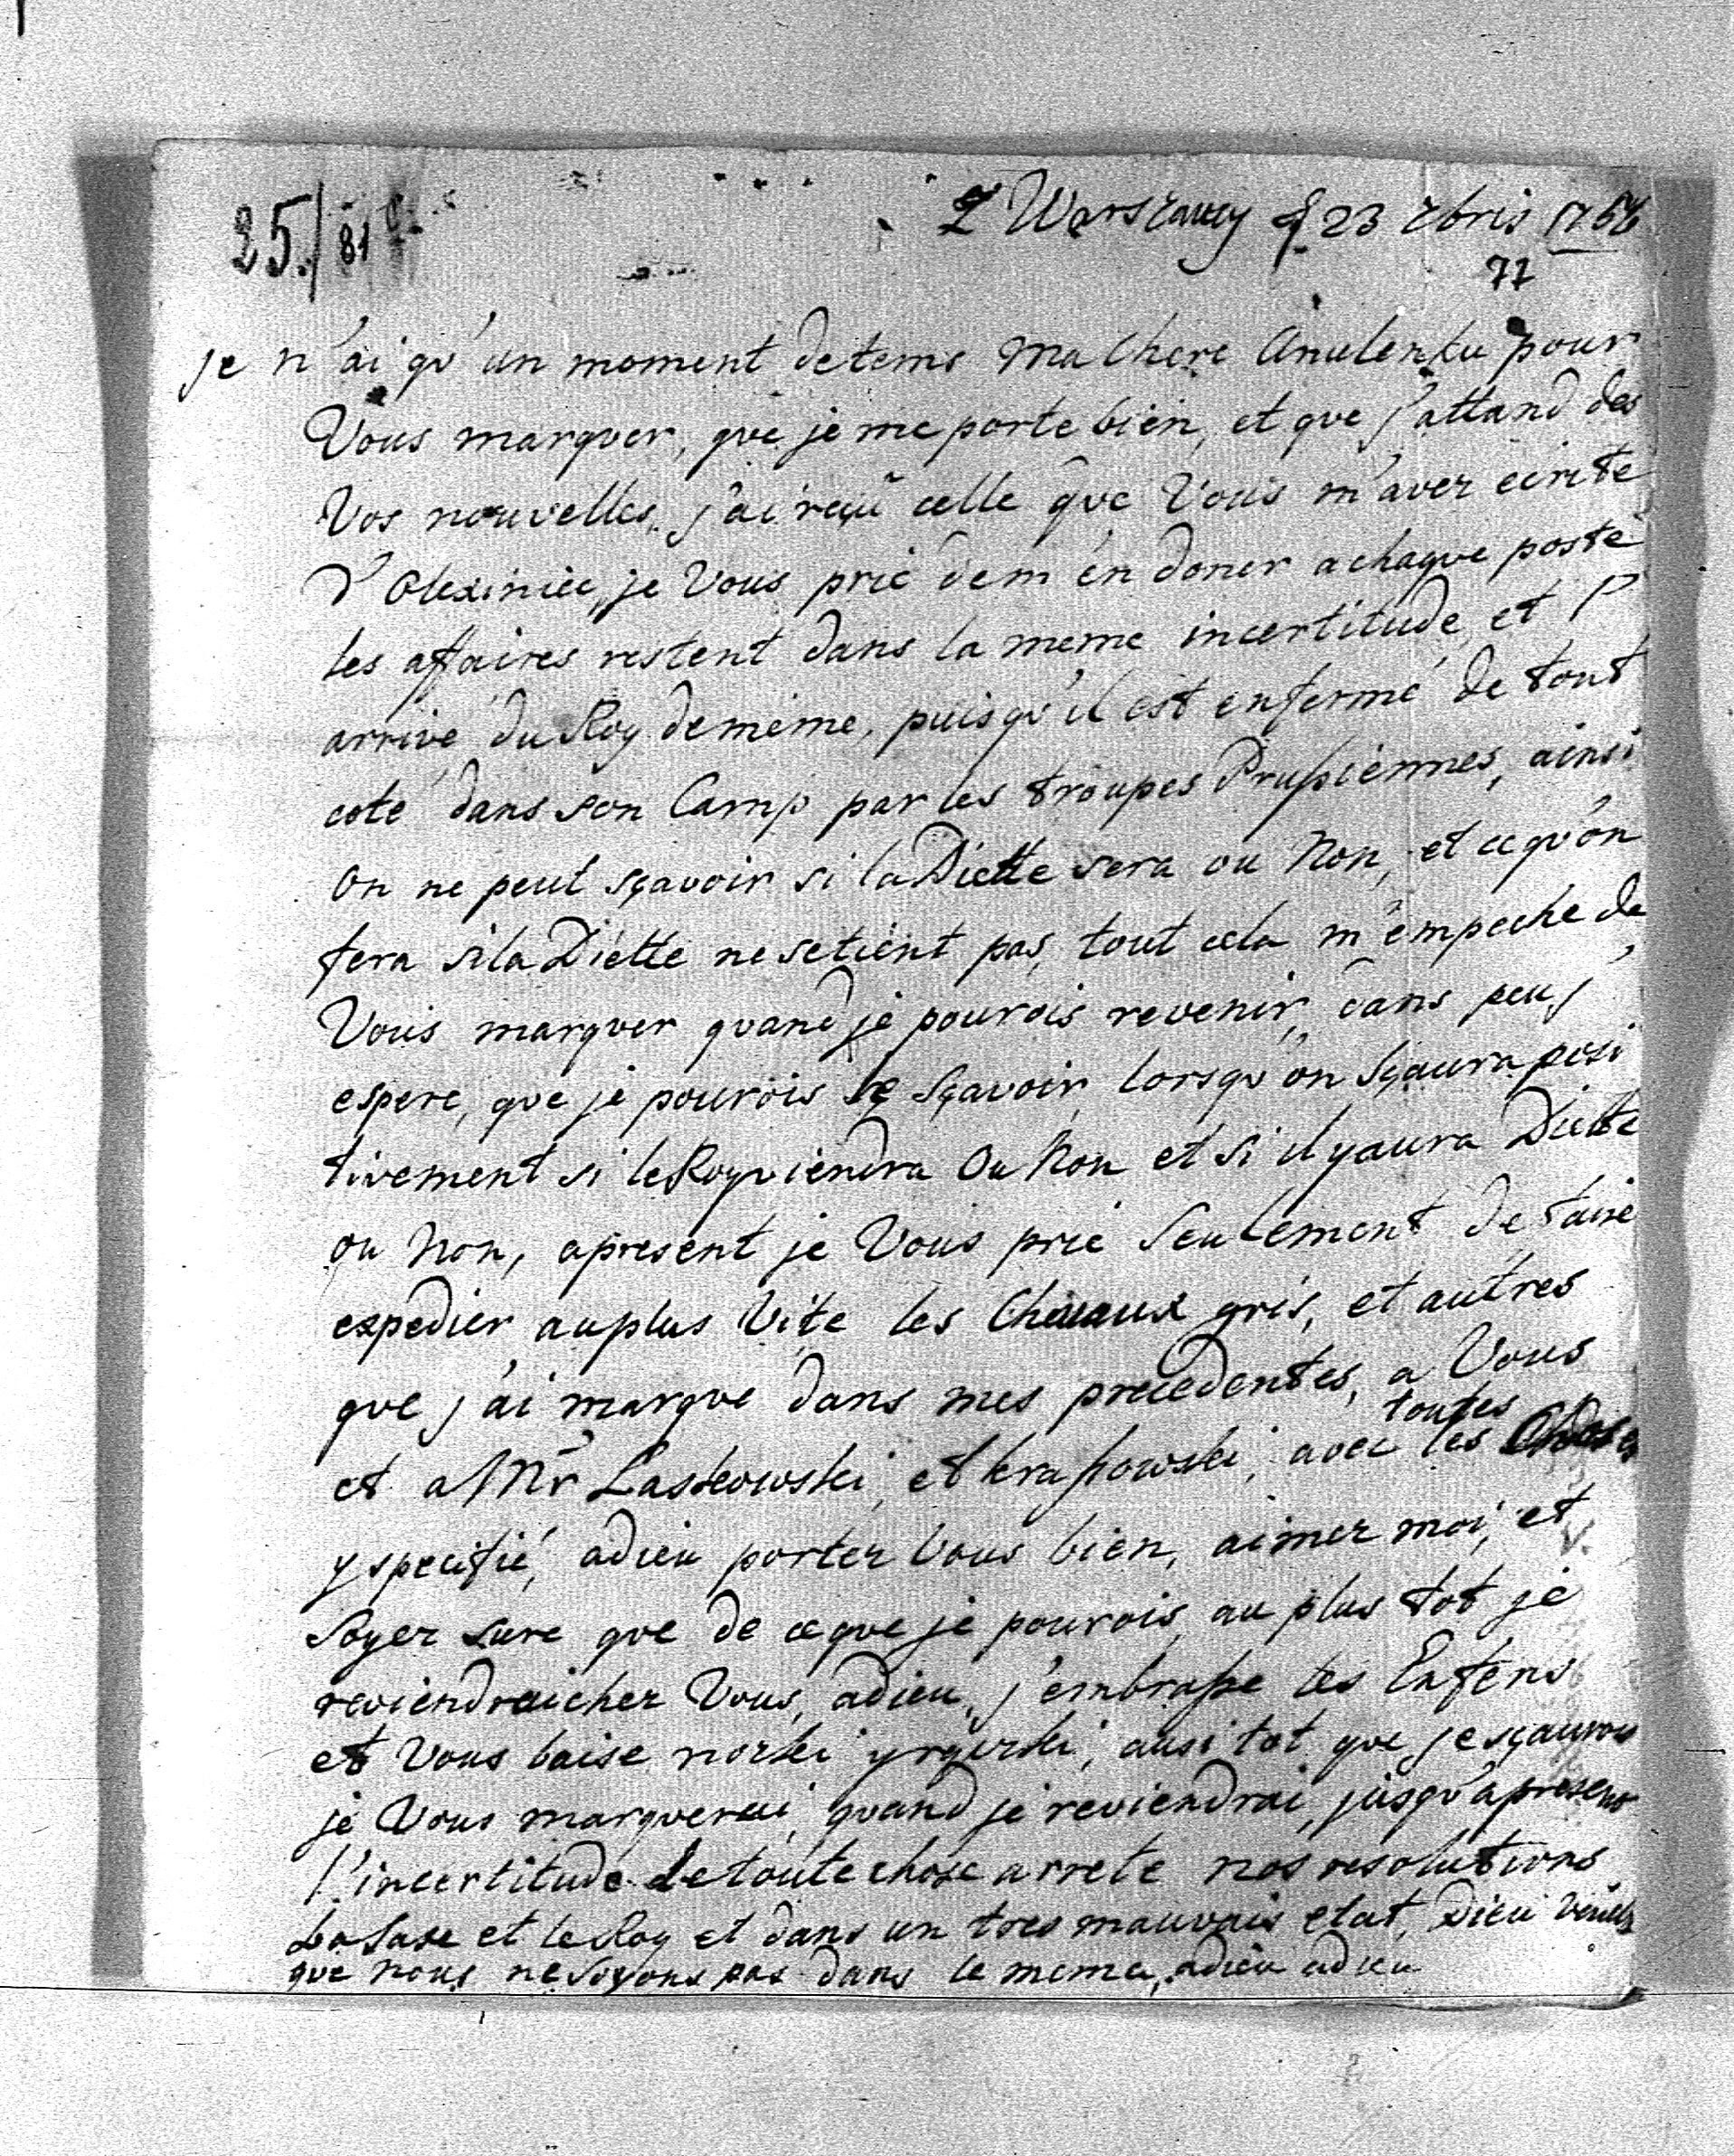 25./ 81
Z Warszawy d 23 7bris 1756
77
je n'ai qu'un moment de tems Ma Chere Anulenku pour
Vous marquer, que je me porte bien, et que j'attand des
Vos nouvelles, j'ai reçu celle que Vous m'avez ecrite
d'Olexiniec, je Vous prie de m'en doner a chaque poste
les affaires restent dans la meme incertitude, et l'
arrivé du Roy de meme, puisqu'il est enfermé de tout
coté dans son Camp par les troupes Prussiennes, ainsi
on ne peut sçavoir si la Diette sera ou Non, et ce qu'on
fera si la Diette ne se tient pas, tout cela m'empeche de
Vous marquer quand je pourois revenir, dans peu j'
espere, que je pourois le sçavoir, lorsqu'on sçaura posi
tivement si le Roy viendra Ou Non et si il y aura Diette
ou Non, apresent je Vous prie seulement de faire
expedier au plus Vite les Chevaux gris, et autres
que j'ai marqué dans mes precedentes, a Vous
et a Mr Laskowski, et Krassowski, avec toutes les Choses
y specifié, adieu portez Vous bien, aimez moi, et
Soyez sure que de ce que je pourois, au plus tot je
reviendrai chez Vous, adieu, j'embrasse les Enfens
et Vous baise nozki y rączki, ausi tot que je sçaurois
je Vous marquerai, quand je reviendrai, jusqu'apresent
l'incertitude de toute chose arrete nos resolutions
La Saxe et le Roy et dans un tres mauvais etat, Dieu Veuille
que nous ne soyons pas dans le meme, adieu adieu